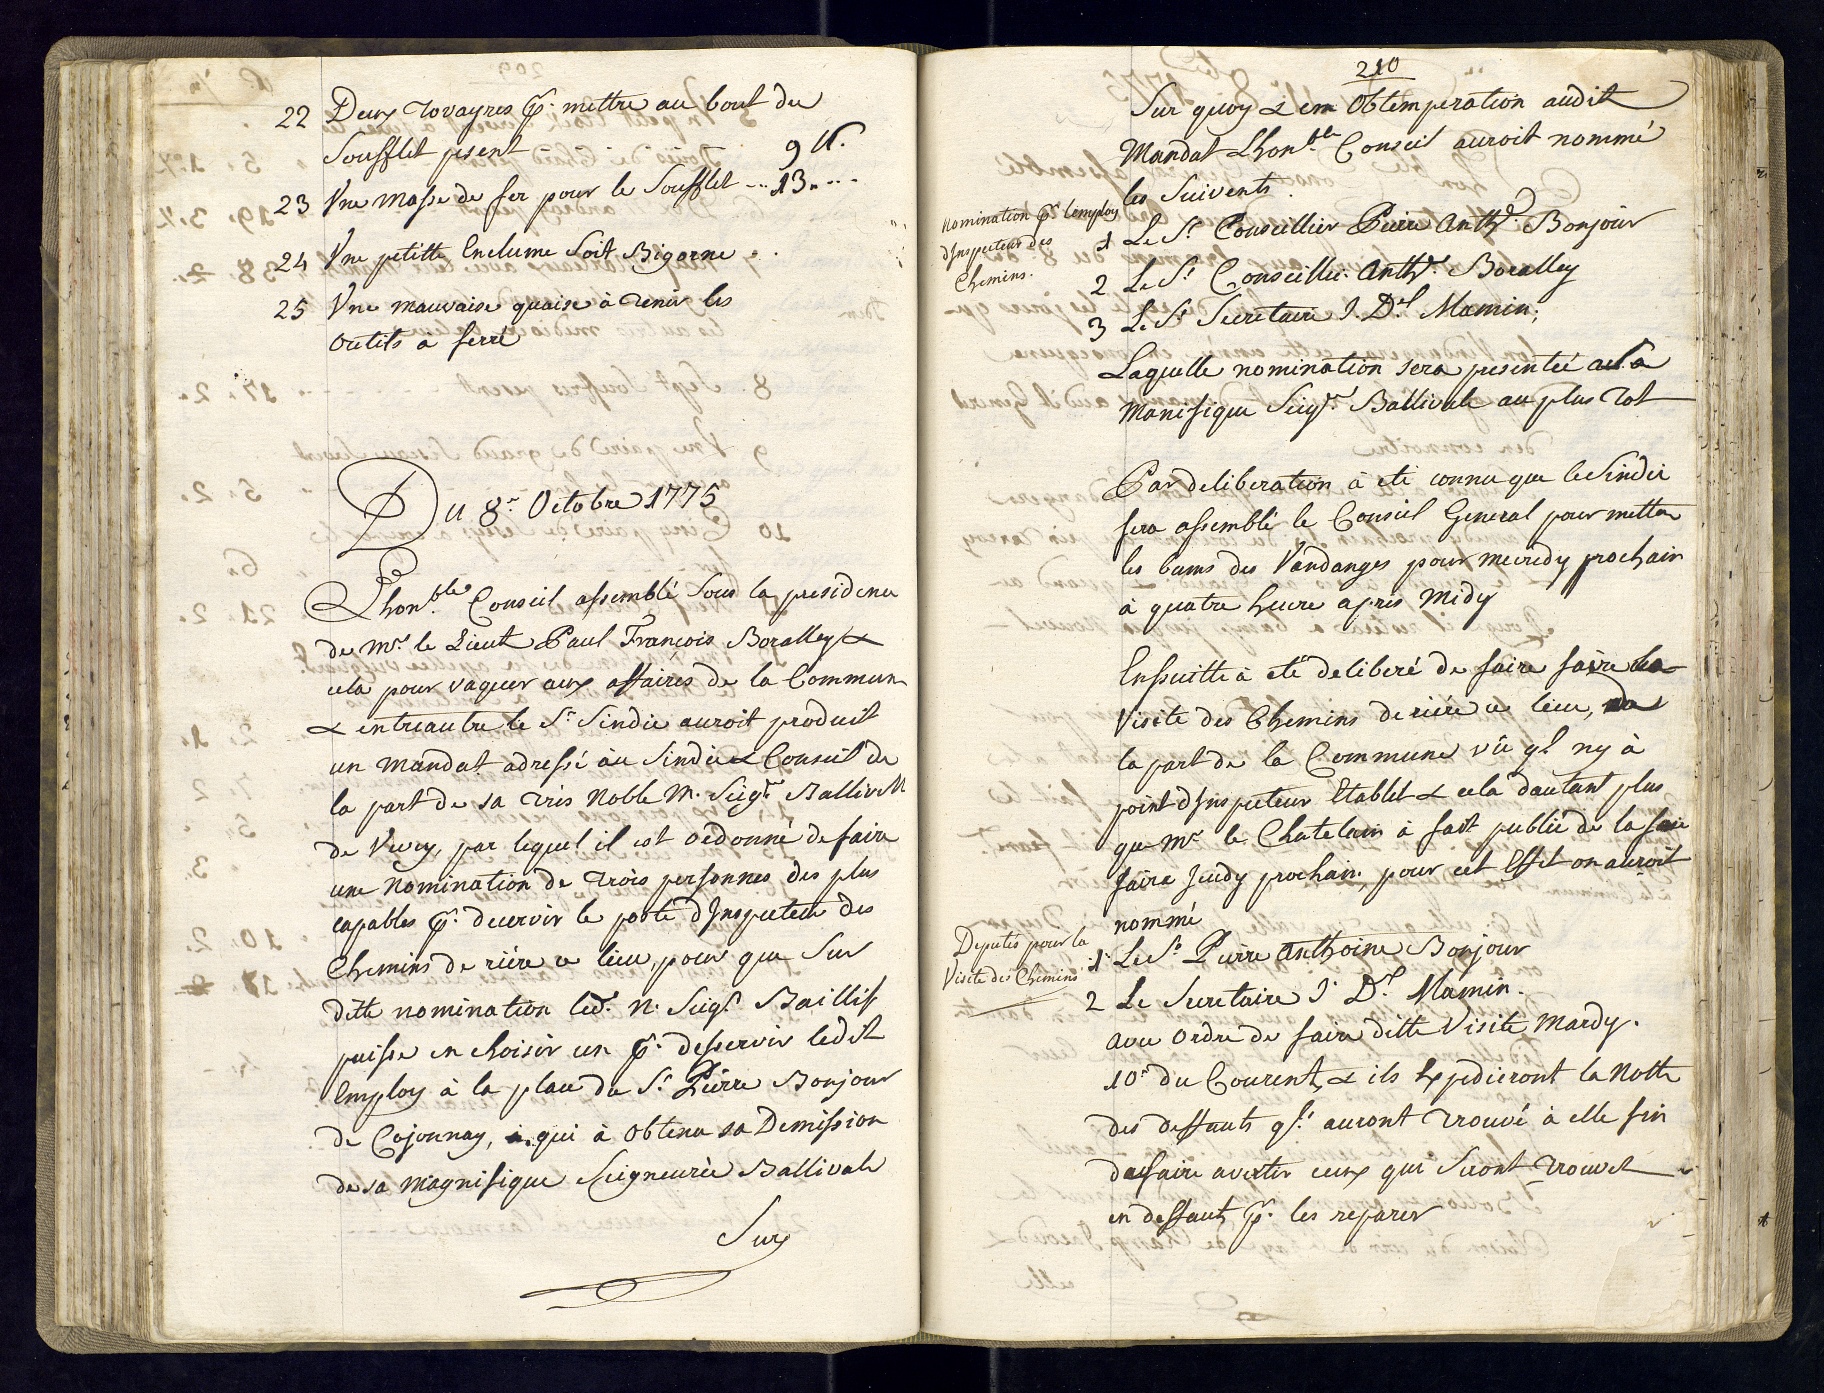 22 Deux Tovayres pr. mettre au bout du
Soufflet pesent 9 lt.
23 Vne Masse de fer pour le Soufflet ... 13. ...
24 Vne petitte Enclume Soit Bigorne . .
25 Vne mauvaise quaise à Tenir les
outils à ferré
Du 8.e Octobre 1775
Lhon.ble Conseil assemblé Sous la presidence
de Mr. le Lieut. Paul François Boralley &
cela pour vaquer aux affaires de la Commune
& entreautre le Sr. Sindic auroit produit
un Mandat adressé au Sindic & Conseil de
la part de sa Tres Noble M. Seigr. Ballivale
de Vevey, par lequel il est ordonné de faire
une Nomination de Trois personnes des plus
capables pr. decervir le poste dInspecteur des
Chemins de riére ce lieu, pour que Sur
ditte nomination led.t N. Seigr. Baillif
puisse en choisir un pr. desservir ledit
Employ à la place du Sr. Pierre Bonjour
de Cojonnay, qui à obtenu sa Demission
de sa Magnifique Seigneurie Ballivale
Sur
210
Sur quoy & en Obtemperation audit
Mandat Lhon.ble Conseil auroit nommé
les Suivents.
Nomination pr. lemploy
dInspecteur des
Chemins.
1 Le Sr. Conseillier Pierre Anth.e Bonjour
2 Le Sr. Conseillie. Anth.e Boralley
3 Le Sr. Secretaire J. D.el Mamin;
Laquelle nomination sera presentée a la
Manifique Seigr. Ballivale au plus Tot
Par deliberation à été connu que le Sindic
fera assemblér le Conseil General pour mettre
les bams des Vandanges pour mecredy prochain
à quatre heure apres Midy
Ensuitte à eté deliberé de faire faire la
Visite des Chemins de riére ce lieu, de
la part de la Commune vû ql. ny à
point dInspecteur Etablit & cela dautant plus
que Mr. le Chatelain à fait publié de la faire
faire Jeudy prochain, pour cet Effet on auroit
nommé
Deputés pour la
Visite des Chemins
1 Le Sr. Pierre Anthoine Bonjour
2 Le Secretaire J. D.el Mamin.
avec Ordre de faire ditte Visite Mardy.
10e du Courent, & ils Expedieront la Notte
des deffauts qls. auront Trouvé à elle fin
de faire avertir ceux qui Seront Trouvet
en deffaut, pr. les reparer